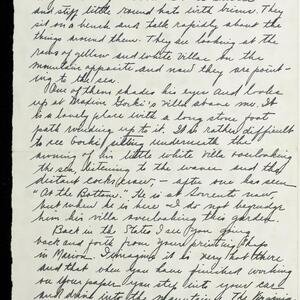 and stiff little round hats with brims. They
sit on a bench and talk rapidly about the
things around them. They are looking at the
rows of yellow and white villas on the
mountains opposite and now they are point-
ing to the sea.
One of them shades his eyes and looks
up at Maxim Gorki's villa above me. It
is a lonely place with a long stone foot
path winding up to it. It is rather difficult
to see Gorki, sitting underneath the
awning of his little white villa overlooking
the sea, listening to the waves and the
distant cocks crow, - after one has seen
"At the Bottom." He is at Sorrento now
but when he is here I do not begrudge
him his villa overlooking this garden.
Back in the States I see you going
back and forth from your printing shops
in Marion. I imagine it is very hot there
and that when you have finished working
on your paper you step into your car
and drive into the mountains